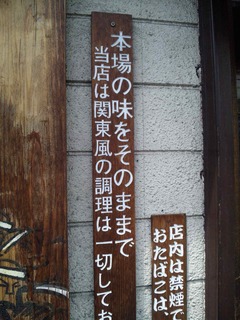 本場の味をそのままで
当店は関東風の調理は一切してお
店内は禁煙で
おたばこは、